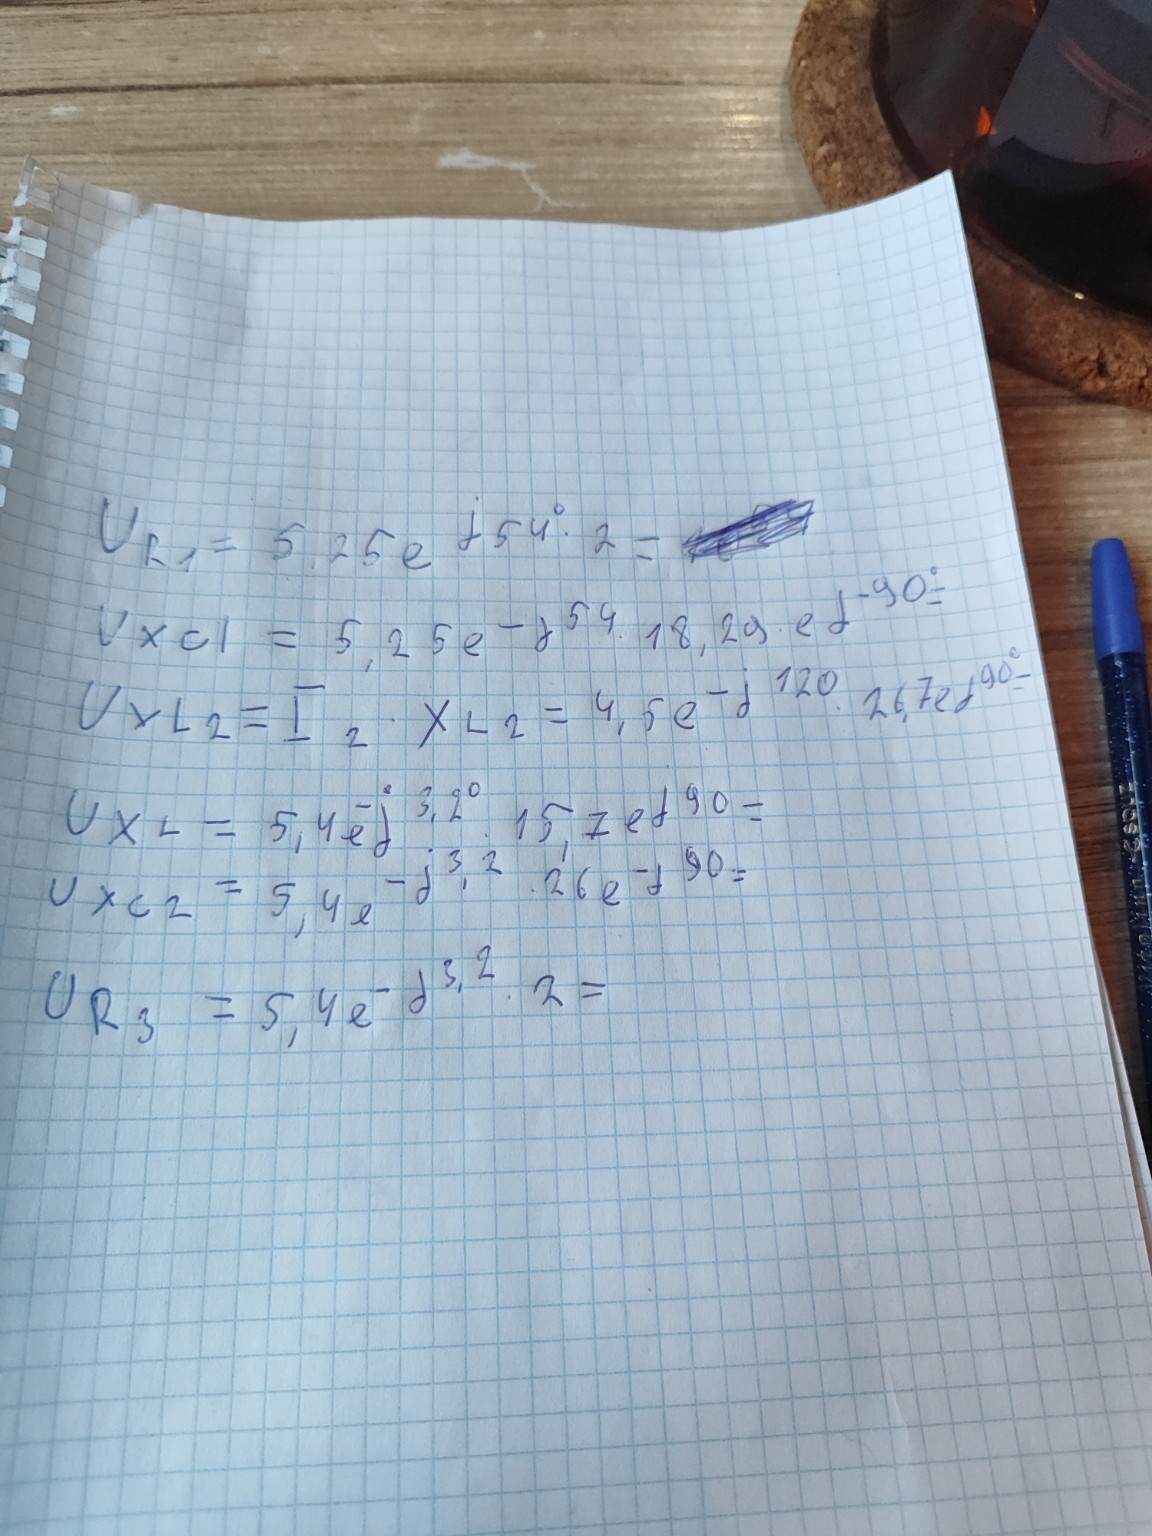 U R1 = 5,25e j54° · 2 =
Uxc1 = 5,25e -j54 · 18,29 · e j-90° =
UxL2 = I 2 · XL2 = 4,5e -j120 · 26,7e j90° =
UXL = 5,4e -j3,2° · 15,7e j90 =
Uxc2 = 5,4e -j3,2 · 26e -j90 =
UR3 = 5,4e -j3,2 · 2 =